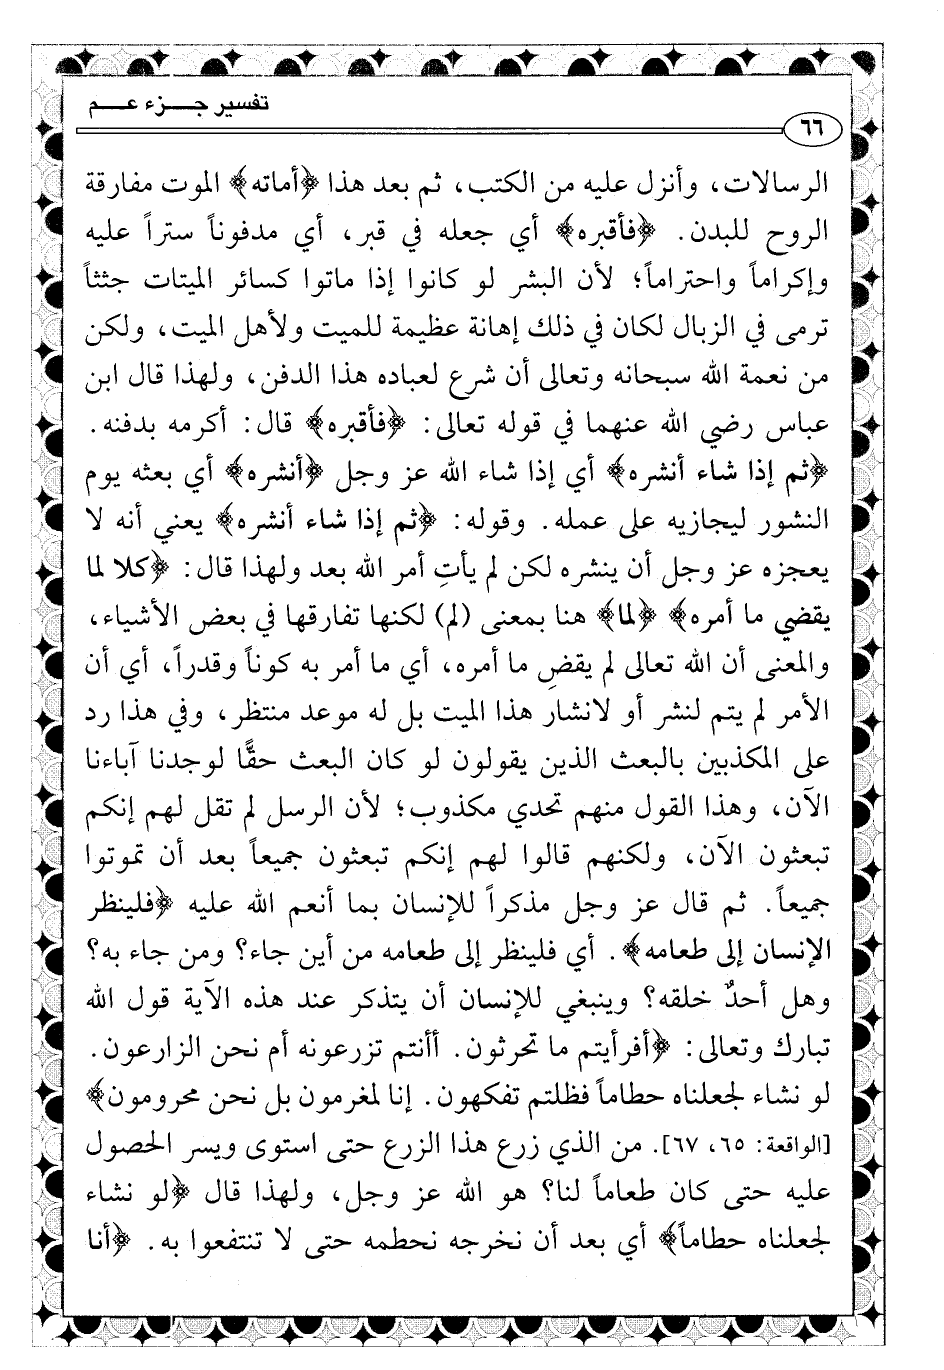 تفسير جـــزء عـــم
٦٦
الرسالات، وأنزل عليه من الكتب، ثم بعد هذا ﴿أماته﴾ الموت مفارقة
الروح للبدن. ﴿فأقبره﴾ أي جعله في قبر، أي مدفوناً ستراً عليه
وإكراماً واحتراماً؛ لأن البشر لو كانوا إذا ماتوا كسائر الميتات جثثاً
ترمى في الزبال لكان في ذلك إهانة عظيمة للميت ولأهل الميت، ولكن
من نعمة الله سبحانه وتعالى أن شرع لعباده هذا الدفن، ولهذا قال ابن
عباس رضي الله عنهما في قوله تعالى: ﴿فأقبره﴾ قال: أكرمه بدفنه.
﴿ثم إذا شاء أنشره﴾ أي إذا شاء الله عز وجل ﴿أنشره﴾ أي بعثه يوم
النشور ليجازيه على عمله. وقوله: ﴿ثم إذا شاء أنشره﴾ يعني أنه لا
يعجزه عز وجل أن ينشره لكن لم يأتِ أمر الله بعد ولهذا قال: ﴿كلا لما
يقضي ما أمره﴾ ﴿لما﴾ هنا بمعنى (لم) لكنها تفارقها في بعض الأشياء،
والمعنى أن الله تعالى لم يقضِ ما أمره، أي ما أمر به كوناً وقدراً، أي أن
الأمر لم يتم لنشر أو لانشار هذا الميت بل له موعد منتظر، وفي هذا رد
على المكذبين بالبعث الذين يقولون لو كان البعث حقًّا لوجدنا آباءنا
الآن، وهذا القول منهم تحدي مكذوب؛ لأن الرسل لم تقل لهم إنكم
تبعثون الآن، ولكنهم قالوا لهم إنكم تبعثون جميعاً بعد أن تموتوا
جميعاً. ثم قال عز وجل مذكراً للإنسان بما أنعم الله عليه ﴿فلينظر
الإنسان إلى طعامه﴾. أي فلينظر إلى طعامه من أين جاء؟ ومن جاء به؟
وهل أحدٌ خلقه؟ وينبغي للإنسان أن يتذكر عند هذه الآية قول الله
تبارك وتعالى: ﴿أفرأيتم ما تحرثون. أأنتم تزرعونه أم نحن الزارعون.
لو نشاء لجعلناه حطاماً فظلتم تفكهون. إنا لمغرمون بل نحن محرومون﴾
[الواقعة: ٦٥، ٦٧]. من الذي زرع هذا الزرع حتى استوى ويسر الحصول
عليه حتى كان طعاماً لنا؟ هو الله عز وجل، ولهذا قال ﴿لو نشاء
لجعلناه حطاماً﴾ أي بعد أن نخرجه نحطمه حتى لا تنتفعوا به. ﴿أنا